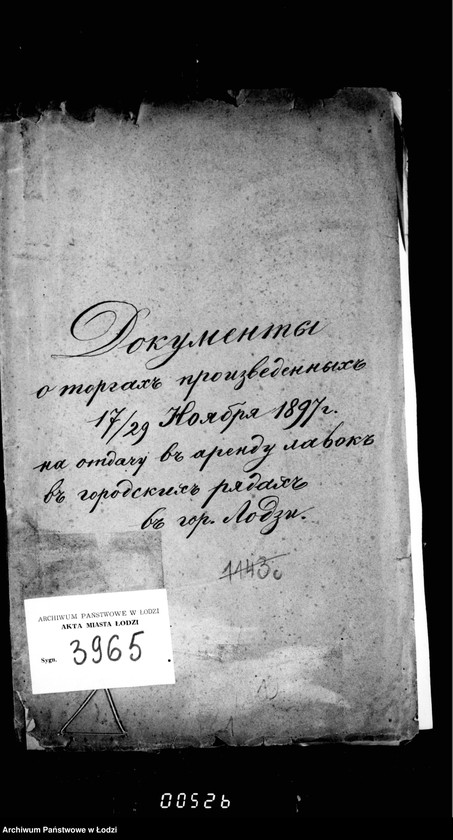 Документы
о торгахъ произведенныхъ
17/29 Ноября 1897 г.
на отдачу въ аренду лавокъ
въ городскихъ рядахъ
въ гор. Лодзи.
1143
ARCHIWUM PAŃSTWOWE W ŁODZI
AKTA MIASTA ŁODZI
Sygn. 3965
00526
Archiwum Państwowe w Łodzi